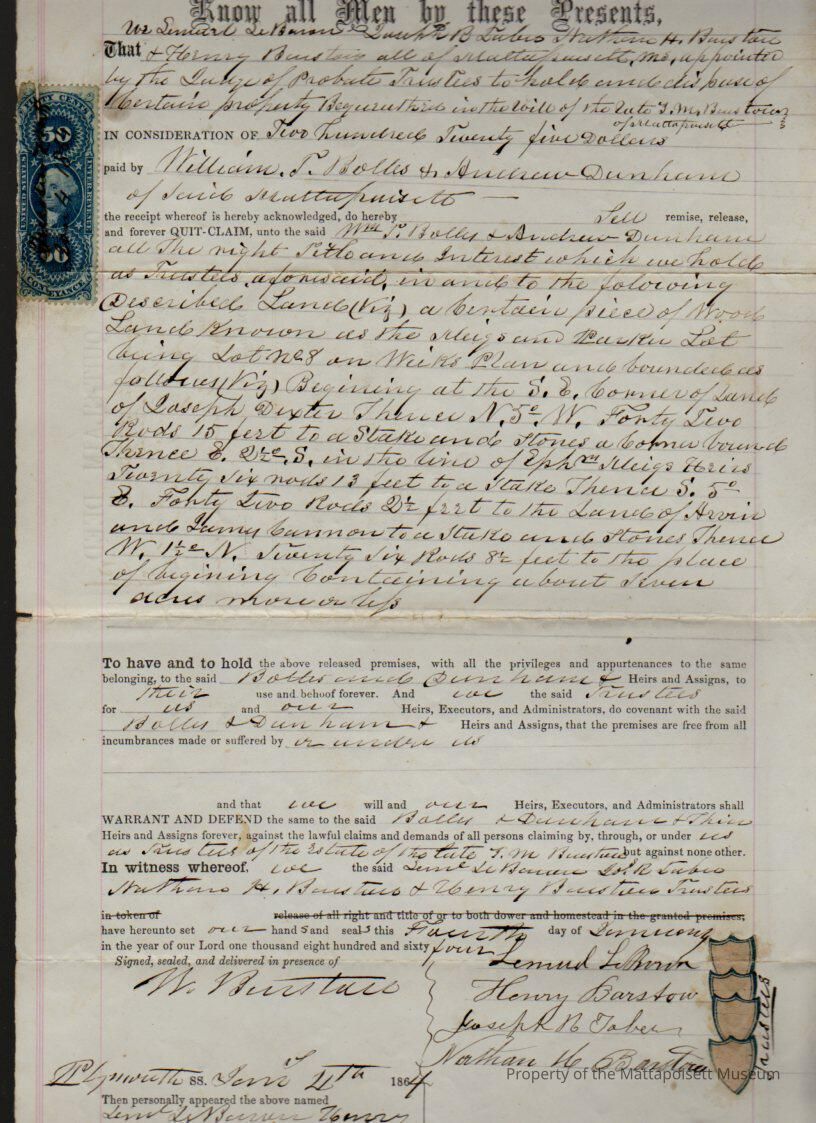 Know all Men by these Presents,
We Lemuel LeBaron Joseph R Taber Nathan H. Barstow
That & Henry Barstow all of Mattapoisett, Ms, appointed
by the Judge of Probate Trustees to hold and dispose of
Certain property Bequeathed in the Will of the late Barstow
of Mattapoisett
IN CONSIDERATION OF Two hundred Twenty five Dollars
paid by William. T. Bolles & Andrew Dunham
of said Mattapoisett
the receipt whereof is hereby acknowledged, do hereby Sell remise, release,
and forever QUIT-CLAIM, unto the said Wm T. Bolles & Andrew Dunham
all the right Title and Interest which we hold
as Trustees aforesaid, in and to the folowing
Described Land (Viz) a Certain piece of Wood
Land Known as the Meigs and Parker Lot
being Lot No 8 on Weeks Plan and bounded as
follows (Viz) Begining at the S. E. Corner of Land
of Joseph Dexter Thence N. 5° W. Forty Two
Rods 15 feet to a Stake and Stones a Corner bound
Thence E. 2½° S. in the line of Ephm Meigs Heirs
Twenty Six rods 13 feet to a Stake Thence S. 5°
E. Forty Two Rods 2½ feet to the Land of Arvin
and Cannon to a Stake and Stones Thence
W. 1½° N. Twenty Six Rods 8½ feet to the place
of begining Containing about Seven
acres more or less
To have and to hold the above released premises, with all the privileges and appurtenances to the same
belonging, to the said Bolles and Dunham & Heirs and Assigns, to
their use and behoof forever. And we the said Trustees
for us and our Heirs, Executors, and Administrators, do covenant with the said
Bolles & Dunham & Heirs and Assigns, that the premises are free from all
incumbrances made or suffered by or under us
and that we will and our Heirs, Executors, and Administrators shall
WARRANT AND DEFEND the same to the said Bolles & Dunham & Their
Heirs and Assigns forever, against the lawful claims and demands of all persons claiming by, through, or under us
as Trustees of the Estate of the late Barstow but against none other.
In witness whereof, we the said Leml LeBaron Jos. R Taber
Nathan H. Barstow & Henry Barstow Trustees
in token of release of all right and title of or to both dower and homestead in the granted premises,
have hereunto set our hands and seals this Fourth day of January
in the year of our Lord one thousand eight hundred and sixty four
Signed, sealed, and delivered in presence of
W. Barstow
Lemuel LeBaron
Henry Barstow
Joseph R Taber
Nathan H Barstow
Trustees
Plymouth SS. Jany 4th 1864
Then personally appeared the above named
Leml LeBaron Henry
50
50
CONVEYANCE
Property of the Mattapoisett Museum